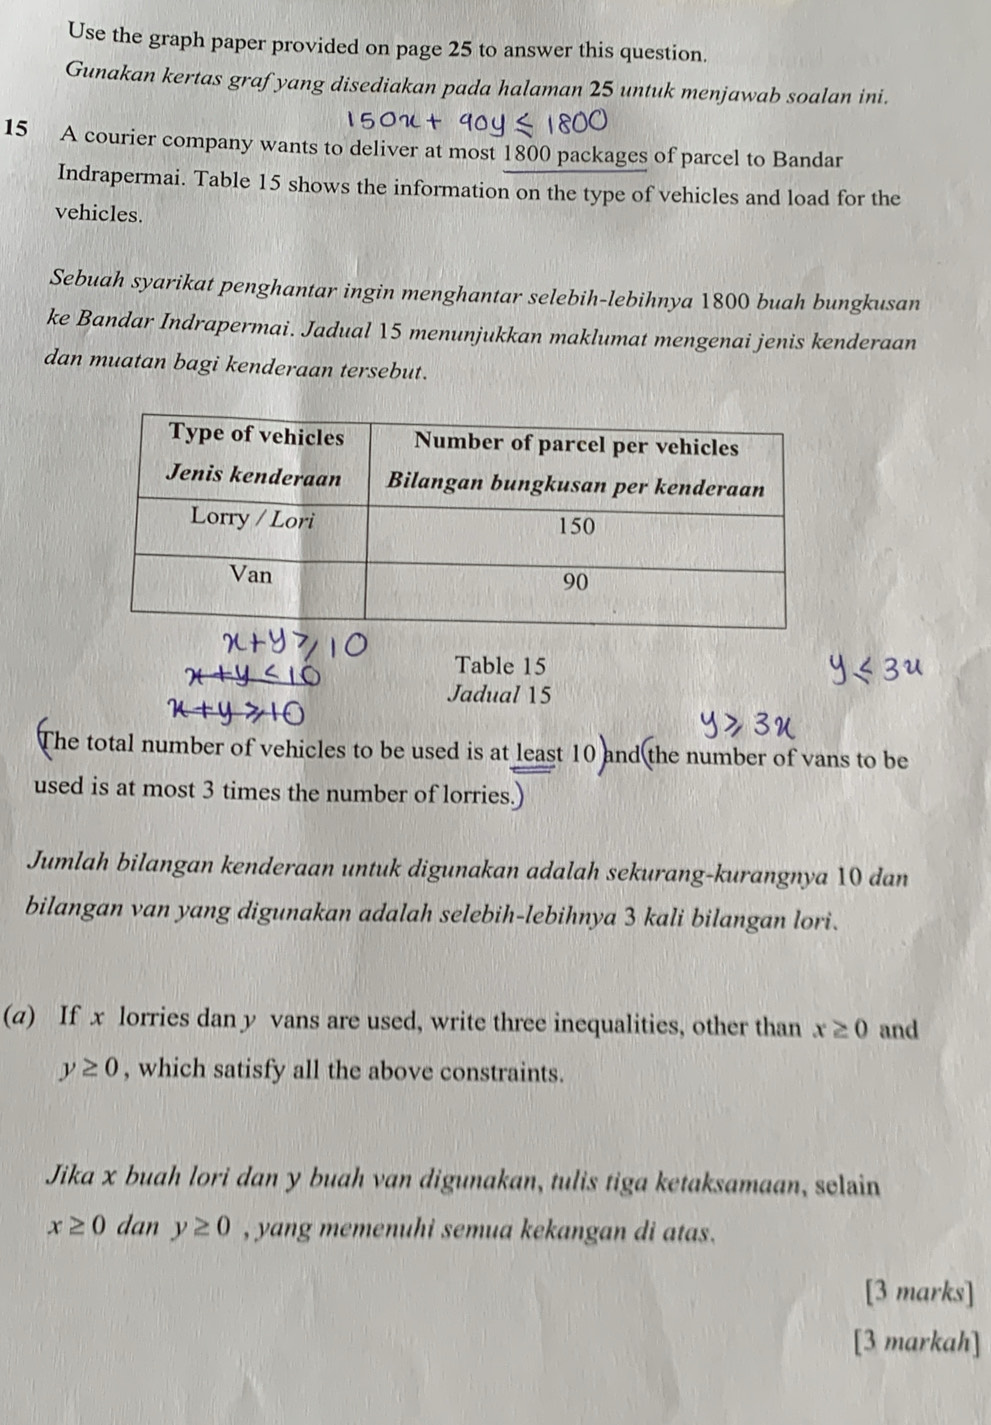 Use the graph paper provided on page 25 to answer this question.
Gunakan kertas graf yang disediakan pada halaman 25 untuk menjawab soalan ini.
150x + 90y ≤ 1800
15 A courier company wants to deliver at most 1800 packages of parcel to Bandar
Indrapermai. Table 15 shows the information on the type of vehicles and load for the
vehicles.
Sebuah syarikat penghantar ingin menghantar selebih-lebihnya 1800 buah bungkusan
ke Bandar Indrapermai. Jadual 15 menunjukkan maklumat mengenai jenis kenderaan
dan muatan bagi kenderaan tersebut.
Type of vehicles Number of parcel per vehicles
Jenis kenderaan Bilangan bungkusan per kenderaan
Lorry / Lori 150
Van 90
x+y ≥ 10
x+y ≤ 10
x+y ≥ 10
Table 15
Jadual 15
y ≤ 3x
y ≥ 3x
(The total number of vehicles to be used is at least 10) and (the number of vans to be
used is at most 3 times the number of lorries.)
Jumlah bilangan kenderaan untuk digunakan adalah sekurang-kurangnya 10 dan
bilangan van yang digunakan adalah selebih-lebihnya 3 kali bilangan lori.
(a) If x lorries dan y vans are used, write three inequalities, other than x ≥ 0 and
y ≥ 0, which satisfy all the above constraints.
Jika x buah lori dan y buah van digunakan, tulis tiga ketaksamaan, selain
x ≥ 0 dan y ≥ 0 , yang memenuhi semua kekangan di atas.
[3 marks]
[3 markah]